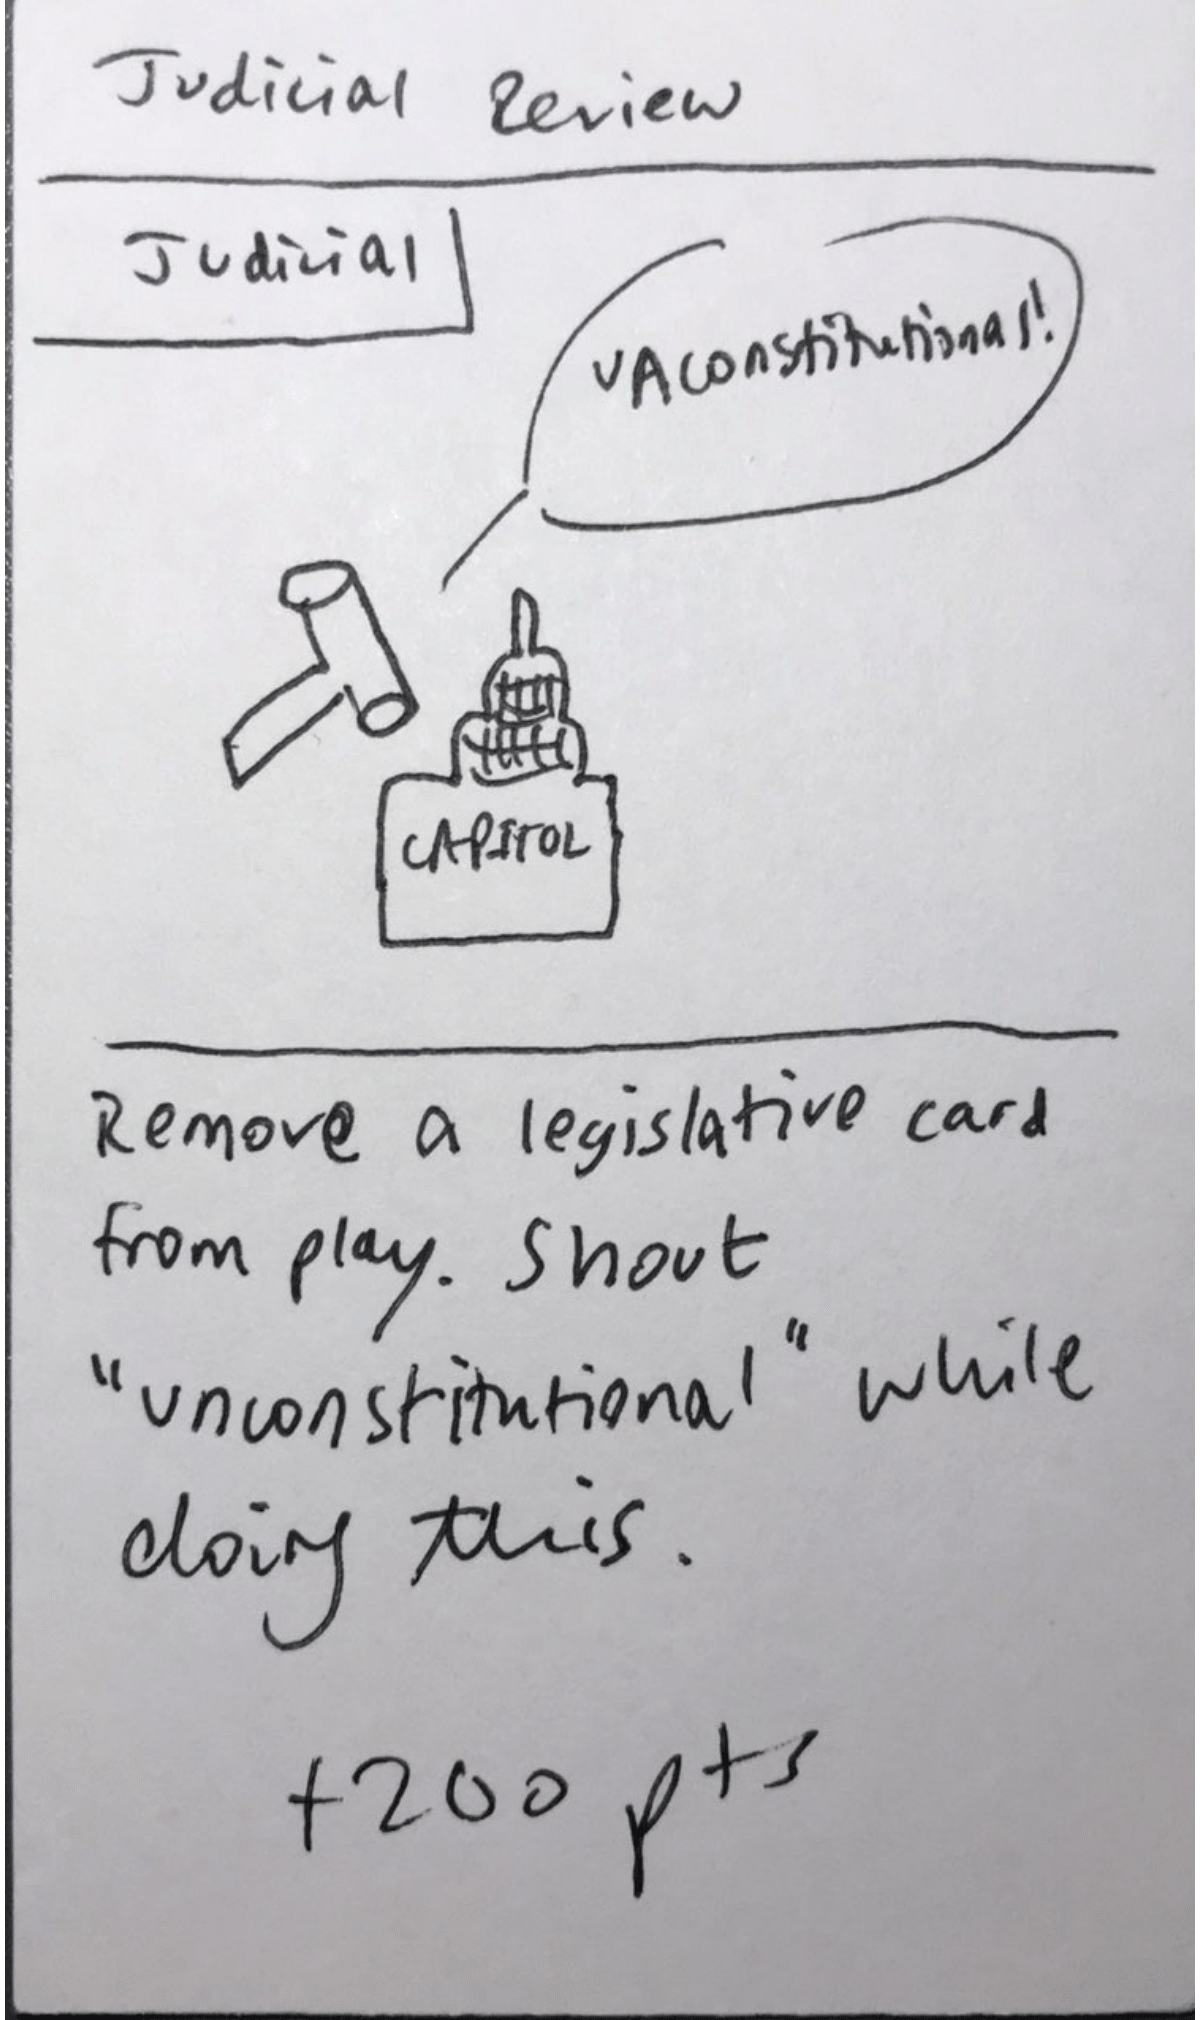 Judicial Review
Judicial
unconstitutional!
CAPITOL
Remove a legislative card
from play. Shout
"unconstitutional" while
doing this.
+200 pts